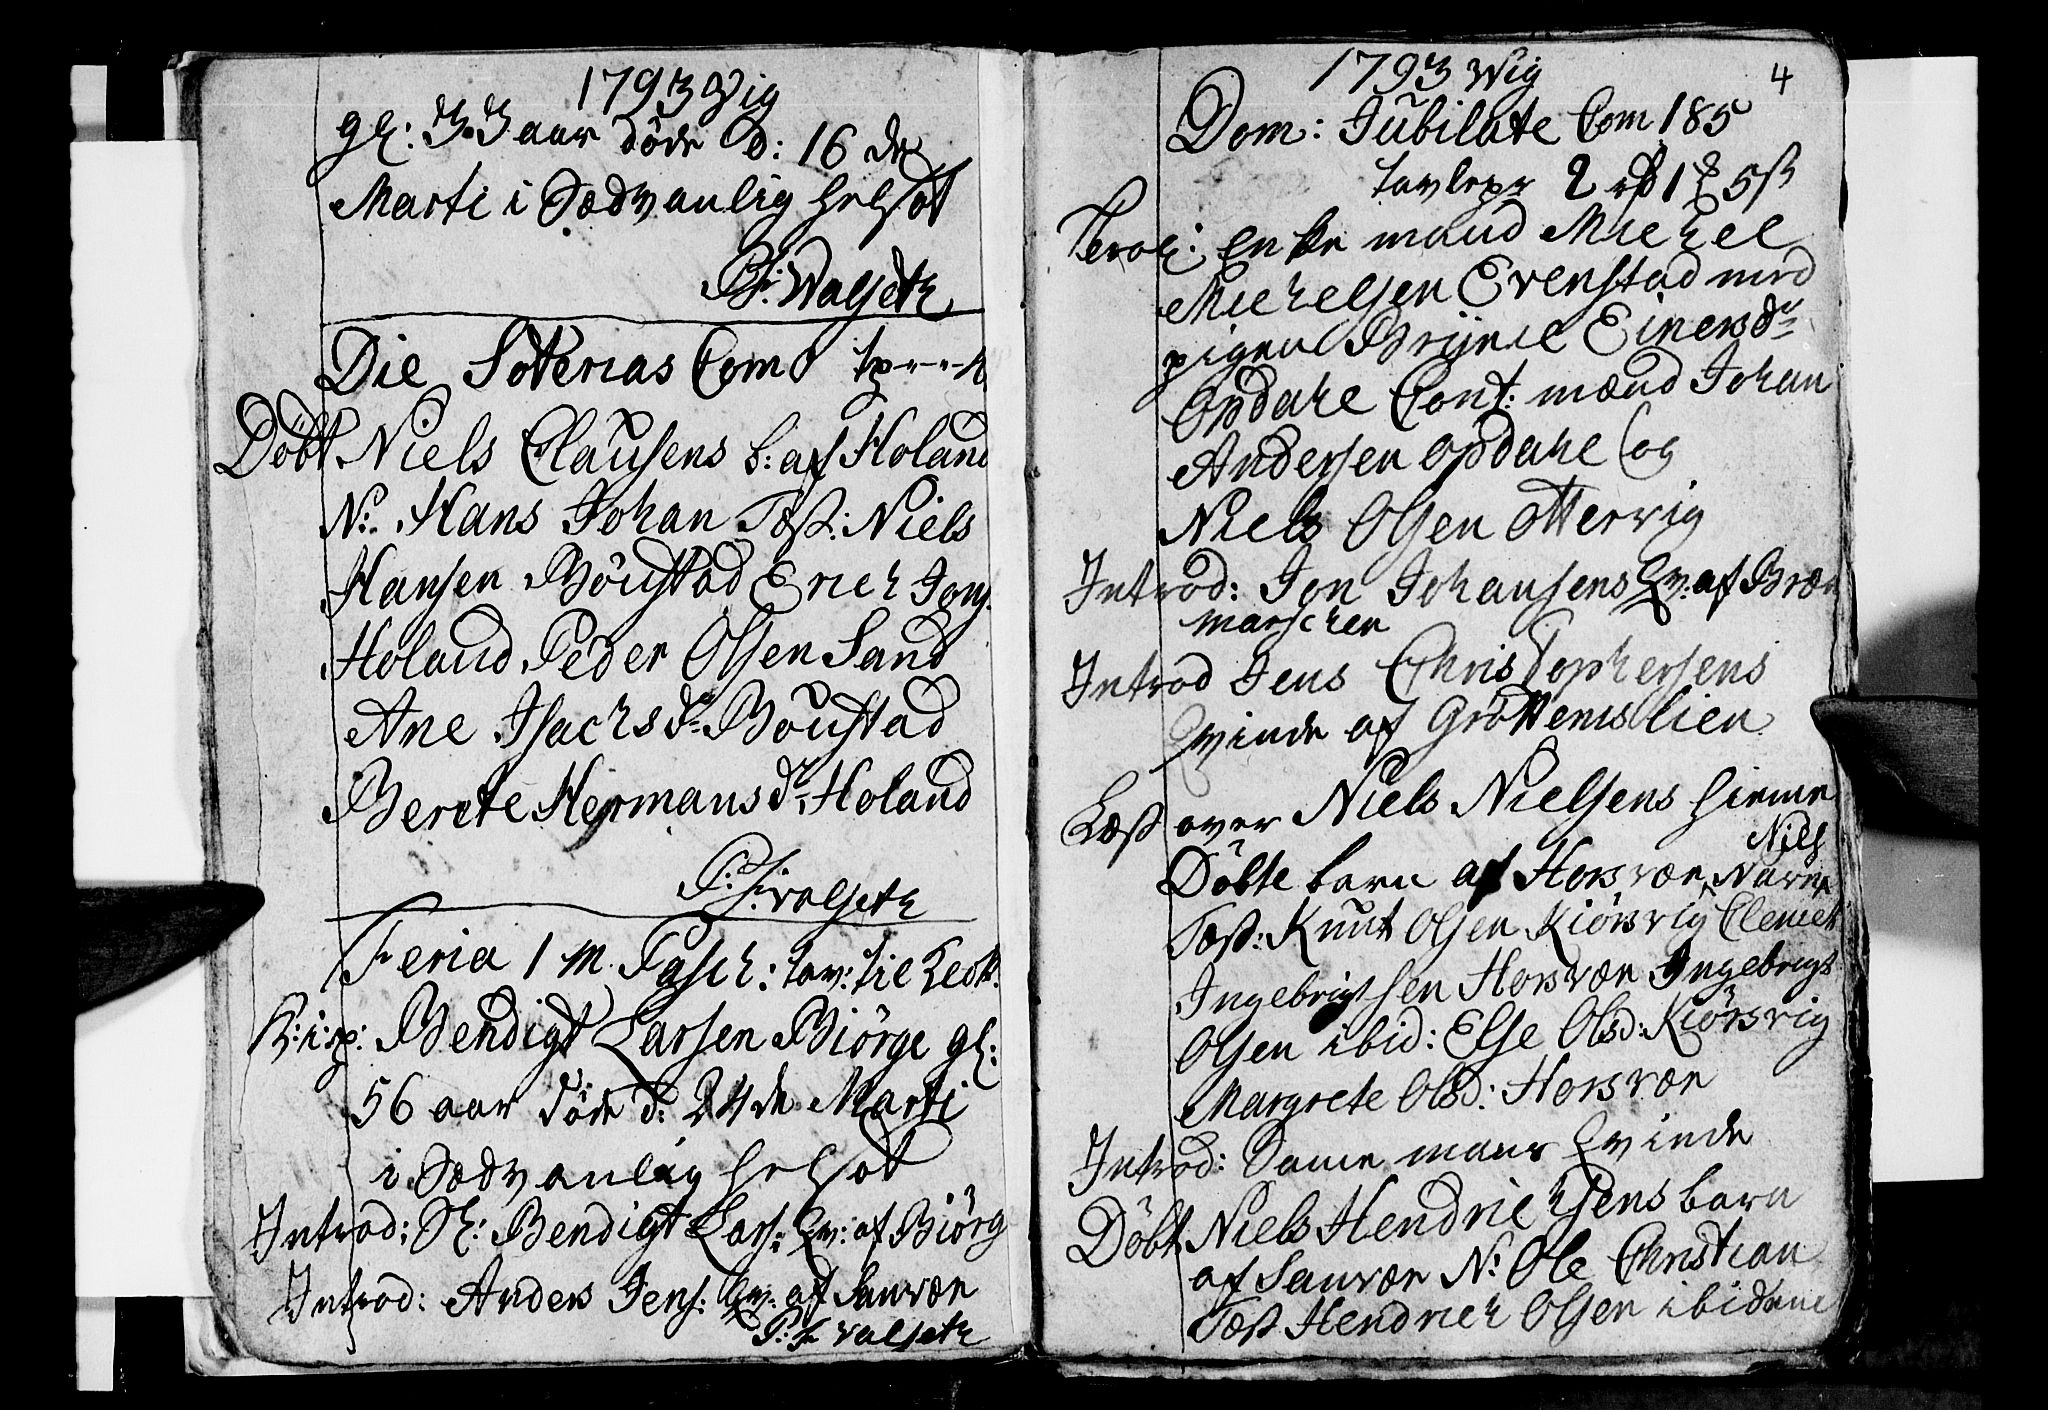 1793 Wig
gl: 33 aar döde d: 16 de
Marti i Sædvanlig helsot
P: F: Walseth
Die Soterias Com 0 tp
Döbt Niels Clausens b: af Holand
N: Hans Johan Test: Niels
Hansen Böustad Erich Jons:
Holand Peder Olsen Sand
Ane Isachsdr Böustad
Berete Hermansdr Holand
P: F: Walseth
Feria 1 m. Pasch: tav: til Klok.
B: i: sp: Bendigt Larsen Biörge gl:
56 aar döde d: 24 de Marti
i Sædvanlig helsot
Introd: Sl: Bendigt Lars: Qv: af Biörge
Introd: Anders Jens: Qv: af Sauvær
P: F Walseth
1793 Wig 4
Dom: Jubilate Com 185
tavlepr 2 rd 1 5 s
Trol: Enke mand Michel
Michelsen Evenstad med
pigen Einersdr
Opdahl Cont: mænd Johan
Andersen Opdahl og
Niels Olsen Ottervig
Introd: Jon Johansens Qv: af Bræn
marschen
Introd Jens Christophersens
Qvinde af Gröttemslien
Læst over Niels Nielsens hieme
Niels
Döbte barn af Horsvær Navn
Test: Knut Olsen Kiörsvig Clemet
Ingebrigtsen Horsvær Ingebrigt
Olsen ibid: Else Olsd: Kiörsvig
Margrete Olsd: Horsvær
Introd: Same mans Qvinde
Döbt Niels Hendrichsens barn
af Sauvær N: Ole Christian
Test Hendrich Olsen ibidem